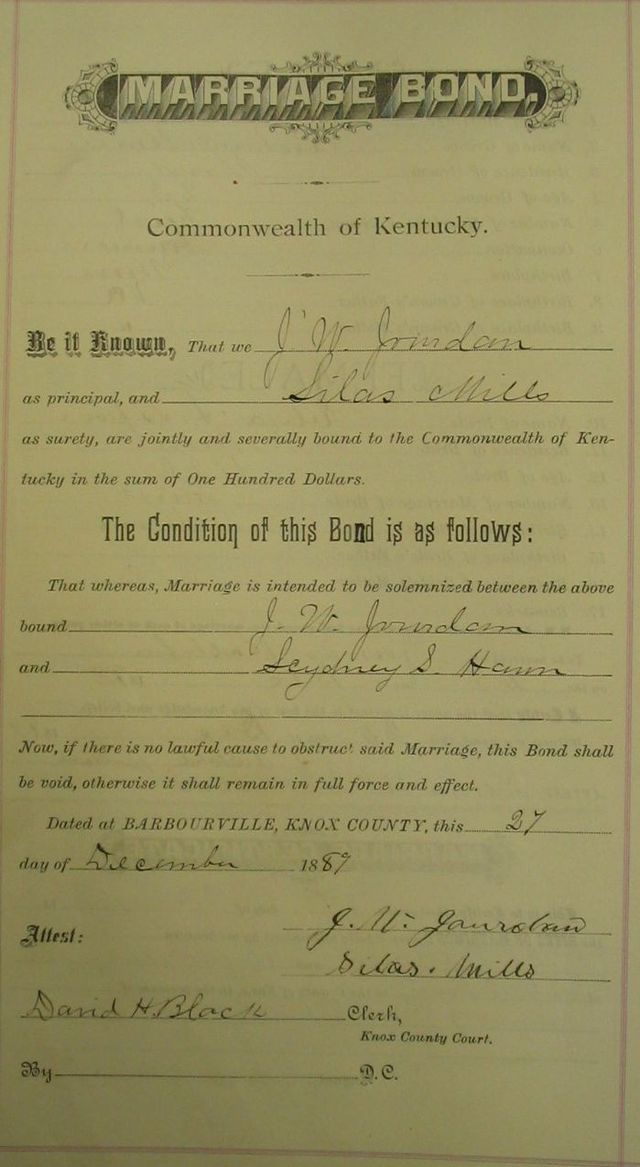 MARRIAGE BOND.
Commonwealth of Kentucky.
Be it Known, That we J W. Jourdan
as principal, and Silas Mills
as surety, are jointly and severally bound to the Commonwealth of Ken-
tucky in the sum of One Hundred Dollars.
The Condition of this Bond is as follows:
That whereas, Marriage is intended to be solemnized between the above
bound J. W. Jourdan
and Scydney S. Hamn
Now, if there is no lawful cause to obstruct said Marriage, this Bond shall
be void, otherwise it shall remain in full force and effect.
Dated at BARBOURVILLE, KNOX COUNTY, this 27
day of December 1889
J. W. Jourdan
Attest:
Silas. Mills
David H. Black Clerk,
Knox County Court.
By D.C.